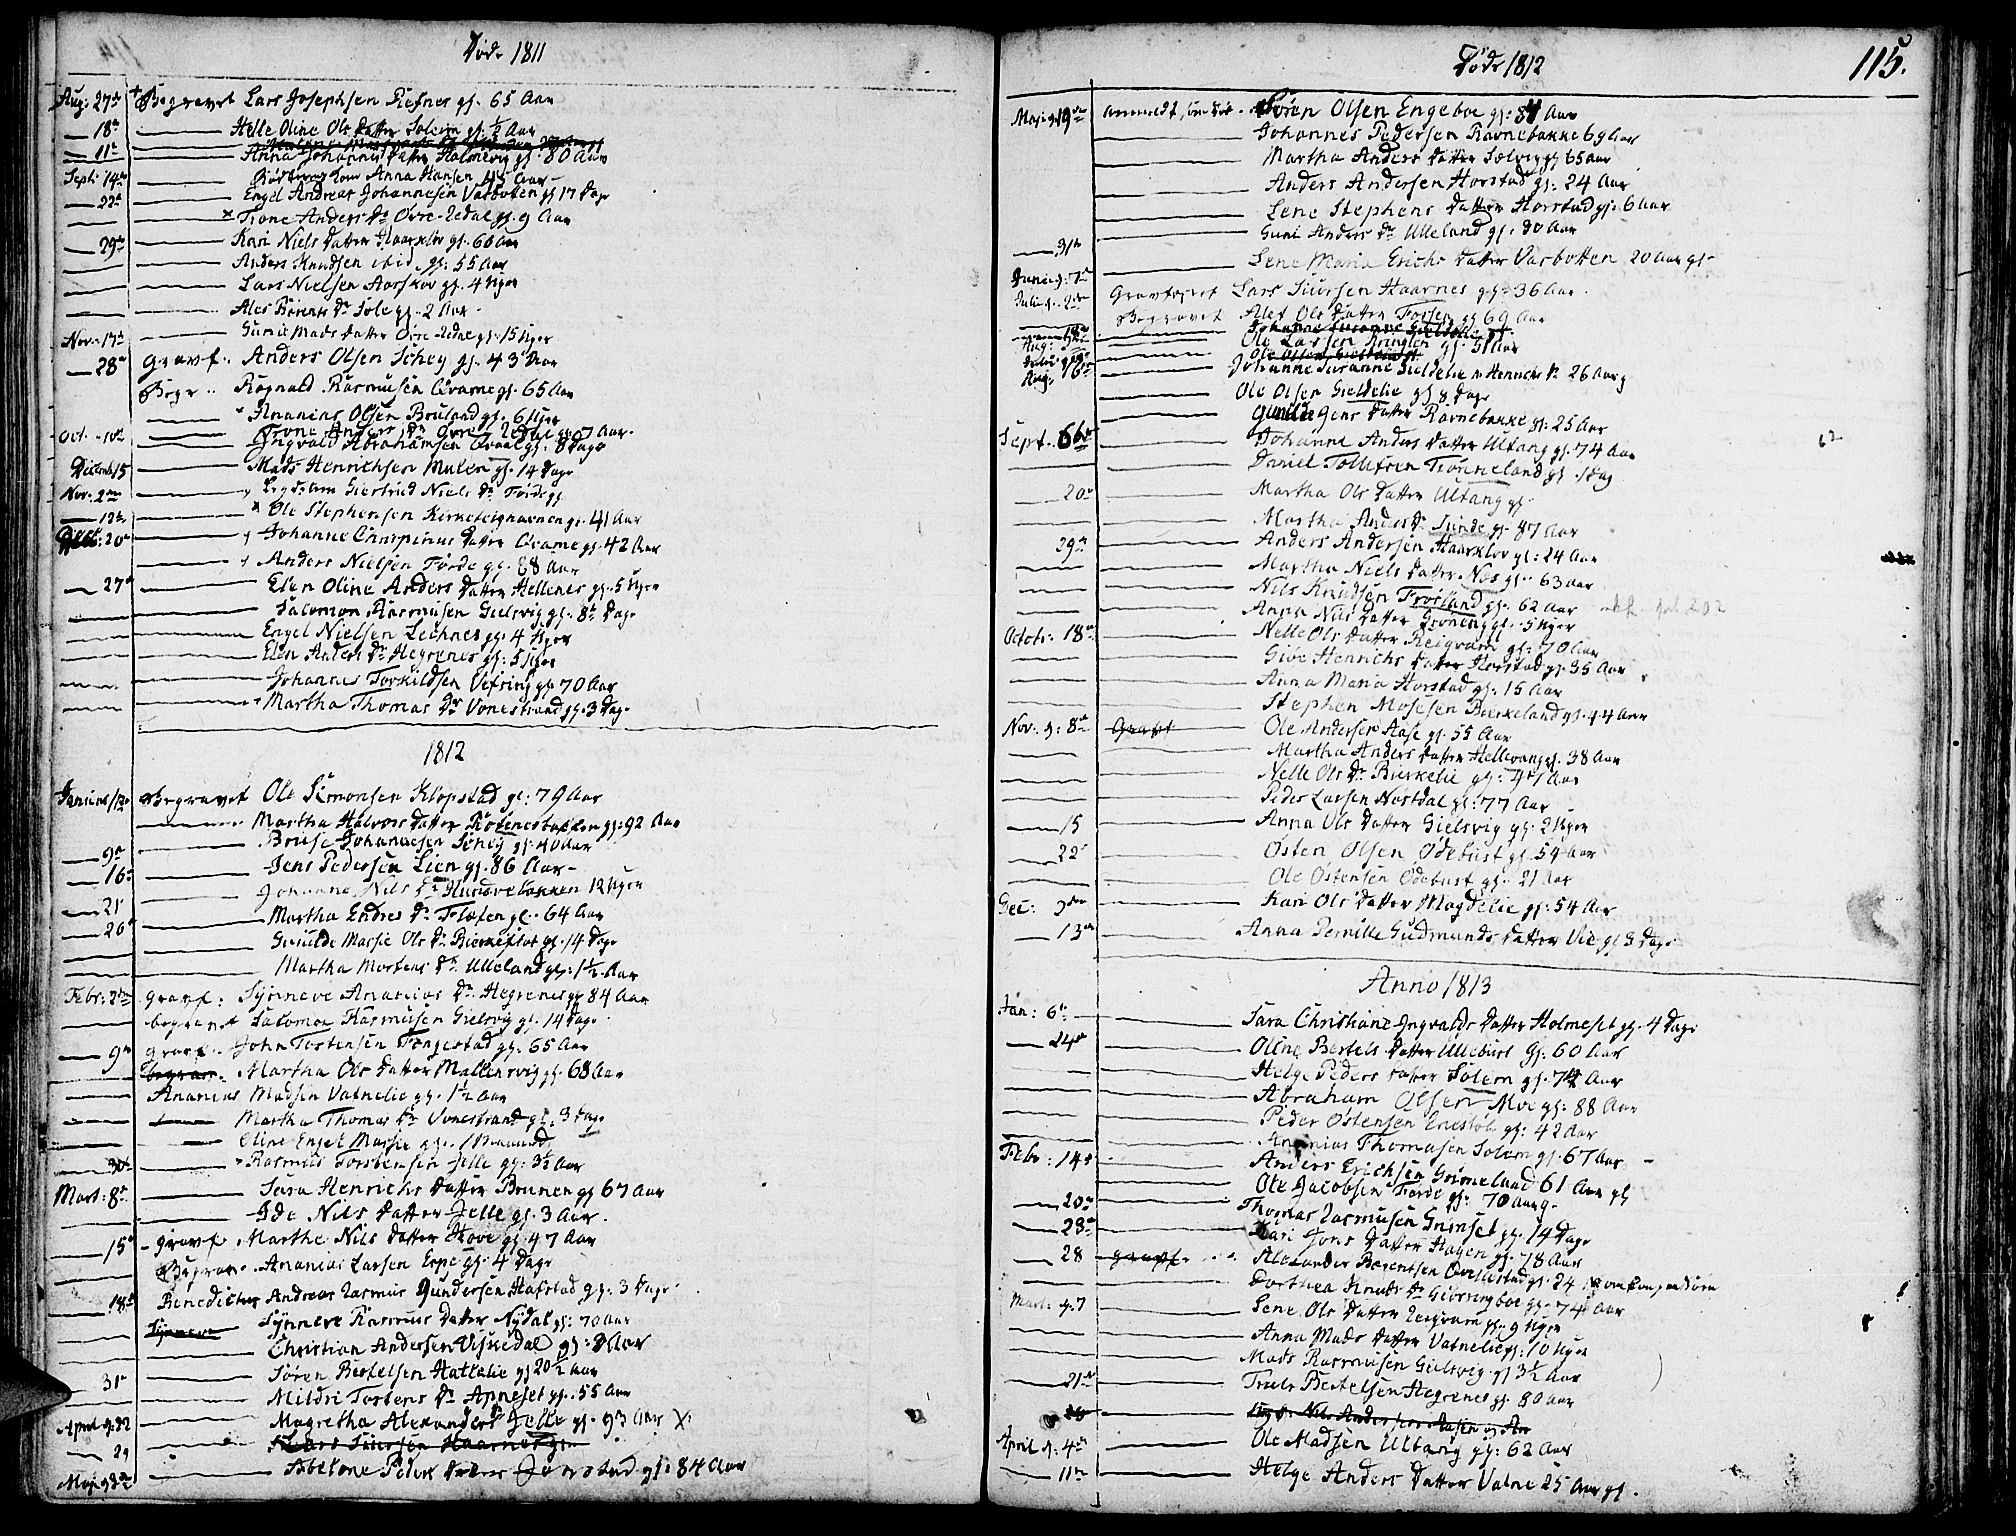 Døde 1811
Aug: 27de Begravet Lars Josephsen Refnes gl. 65 Aar
18de Helle Oline Ols Datter Solem gl: ½ Aar
11te Anna Johannes Datter Holmevig gl. 80 Aar
Sept: 14de Anna Hansen 45 Aar
22de Engel Andreas Johannesen Varbotten gl 17 Dage
Trone Anders Dr Øvre-Redal gl. 9 Aar
29de Kari Niels Datter Haarklov gl. 60 Aar
Anders Knudsen ibid. gl: 55 Aar
Lars Nielsen Horskov gl. 4 Uger
Ales Børents Dr Sole gl. 2 Aar
Nov: 17de Gurie Mads Datter Øvre-Redal gl. 15 Uger
28de Gravf. Anders Olsen Schey gl. 43 Aar
Begr.. Rognald Rasmusen Qvame gl. 65 Aar
Ananias Olsen Bruland gl. 6 Uger
Trone Anders Dr Øvre Redal gl. 7 Aar
Oct. 10de Ingvald Abrahamsen Qvaal gl. 8 Dage
Decemb 15 Mads Henrichsen Mulen gl. 14 Dage
Nov: 2den Giertrud Niels Dr Førde gl
12te Ole Stephensen Kirketeighavnen gl. 41 Aar
Dec: 20de Johanne Chrispinus Datter Qvame gl. 42 Aar
Anders Nielsen Førde gl. 88 Aar
27de Elen Oline Anders Datter Hellenes gl. 5 Uger
Salomon Rasmusen Gielsvig gl. 8te Dage
Engel Nielsen Lechnes gl. 4 Uger
Elen Anders Dr Hegrenes gl: 5 Uger
Johannes Torkildsen Vefring gl. 70 Aar
Martha Thomas Dr Vonestrand gl. 3 Dage
1812
Begravet Ole Simonsen Klopstad gl: 79 Aar
Martha Halvors Datter gl: 92 Aar
9de Johannesen Schey gl. 40 Aar
16de Jens Pedersen Lien gl. 86 Aar
21 Johanne Nils Dr Hundvebakken 12 Uger
26de Martha Endres Dr Flaten gl. 64 Aar
Gunilde Marie Ols Dr Bierkeflot gl. 14 Dage
Martha Mortens Dr Ulleland gl: 1½ Aar
Febr: 2den gravf: Synneve Ananias Dr Hegrenes gl 84 Aar
begravet Salomon Rasmusen Gielsvig gl. 14 Dage
9de gravf.. John Tostensen Fongestad gl. 65 Aar
begrav. Martha Ols Datter Mallensvig gl. 68 Aar
Ananias Madsen Vatnelie gl. 1½ Aar
Martha Thomas Dr Vonestrand gl. 3 Dage
Oline Engel Marsie gl. 1 Maaned
30de Rasmus Torstensen Jelle gl: 3½ Aar
Mart: 8de Sara Henrichs Datter Brunen gl 67 Aar
Ide Nils Datter Jelle gl. 3 Aar.
15de gravf. Marthe Nils Datter Hove gl. 47 Aar
Begrav. Ananias Larsen Erpe gl. 4 Dage
18de Benedictus Andreas Rasmus Gundersen Hafstad gl: 3 Dage
Synneve Synneve Rasmus Datter Nydal gl: 70 Aar
Christian Andersen Viskedal gl: 2 Aar
31te Søren Bertelsen Hatlelie gl 20½ Aar
Mildri Tostens Dr Apneset gl. 55 Aar
April d: 22 Magretha Alexanders Dr Jelle gl. 93 Aar X
29 Lars Siversen Haarnes gl
Maj: d 3de Abelone Peders Datter gl: 84 Aar
Døde 1812
115.
Maj: d 19de anmeldt, Søren Olsen Engeboe gl: 84 Aar
Johannes Pedersen Ravnebakke 69 Aar
Martha Anders Datter Solsvig gl 65 Aar
Anders Andersen Horstad gl. 24 Aar
Lene Stephens Datter Horstad gl. 6 Aar
Guni Anders Dr Ulleland gl. 90 Aar
31te Lene Maria Erichs Datter Varbotten 20 Aar gl
Junie: 7de
Julie: 2den Gravfæstet Lars Siversen Haarnes gl: 36 Aar
Begravet Alet Ols Datter Forsen gl 69 Aar
18de Johanne Susanne Gieldelie gl.
Aug: Ole Larsen Kringlen gl: 51 Aar
Julie Ole Olsen Gieldelie
Aug: 16de Johanne Susanne Gieldelie Henrichs Dr 26 Aar g
Ole Olsen Gieldelie gl 8 Dage
Gunilde Jens Datter Ravnebakke gl: 25 Aar
Sept. 6te Johanne Anders Datter Ultang gl: 74 Aar
62
Daniel Tollefsen Tronneland gl. 1 Dag
20de Martha Ols Datter Ultang gl.
Martha Anders Dr Sunde gl. 87 Aar
29de Anders Andersen Haarklov gl: 24 Aar
Martha Niels Datter Næs gl. 63 Aar
Nils Knudsen Frøsland gl. 62 Aar
Anna Nils Datter Grøneng gl. 5 Uger
Octobr: 18de Nelle Ols Datter Reigvam gl: 70 Aar
Give Henrichs Datter Horstad gl. 35 Aar
Anna Maria Horstad gl: 15 Aar
Stephen Mosesen Bierkeland gl. 44 Aar
Nov: d: 8de Gravf Ole Andersen Aase gl: 55 Aar
Martha Anders Datter Hellevang gl. 38 Aar
Nelle Ols Dr Bierkelie gl: 47 Aar
Peder Larsen Nøstdal gl: 77 Aar
15 Anna Ols Datter Gielsvig gl. 2 Uger
22 Østen Olsen Ødebust gl. 54 Aar
Ole Østensen Ødebust gl. 21 Aar
Dec: Kari Ols Datter Magdelie gl: 54 Aar
13de Anna Pernille Gudmunds Datter Vie gl 3 Dage
Anno 1813
Jan: 6te Sara Christiane Ingvalds Datter Holmeset gl. 4 Dage
24de Oline Bertels Datter Ullebust gl: 60 Aar
Helge Peders Datter Solem gl. 74 Aar
Abraham Olsen Moe gl: 88 Aar
Peder Østensen Enestøl gl: 42 Aar
Ananias Thomasen Solem gl. 67 Aar
Febr: 14de Anders Erichsen Grimeland 61 Aar gl
Ole Jacobsen Førde gl: 70 Aar g.
20de Thomas Rasmusen Grimset gl. 14 Dage
28de Kari Jons Datter Hagen gl. 78 Aar
28 gravf Alexander Børentsen Qvellestad gl. 24
Dorthea Knuds Dr Giørringboe gl. 74 Aar
Mart: d. 7 Lene Ols Datter Reigvam gl. 9 Uger
Anna Mads Datter Vatnelie gl: 10 Uger
Mads Rasmusen Gielsvig gl 3½ Aar
21de Truls Bertelsen Hegrenes gl. 80 Aar
April d: 4de Ole Madsen Ultang gl: 62 Aar
11te Helge Anders Datter Vatne 25 Aar gl.